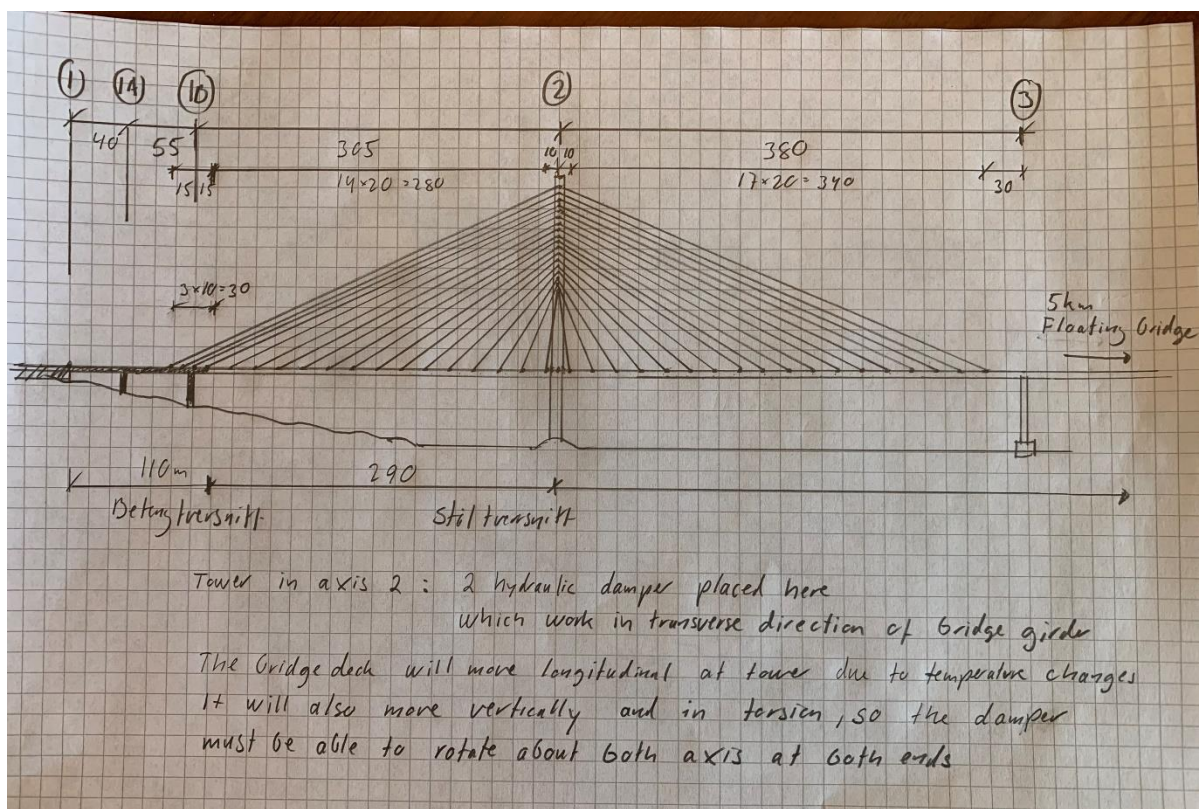 1 1A 1B 2 3
40 55 305 10 10 380
15 15 14×20=280 17×20=340 30
3×10=30
5km
Floating bridge
110m 290
Betongtversnitt Ståltversnitt
Tower in axis 2 : 2 hydraulic damper placed here
which work in transverse direction of bridge girder
The bridge deck will move longitudinal at tower due to temperature changes
It will also move vertically and in torsion, so the damper
must be able to rotate about both axis at both ends